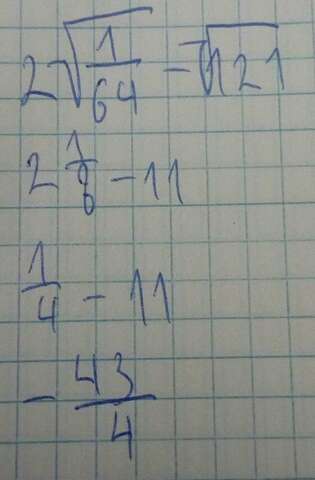 2√(1/64) - √121
2 1/8 - 11
1/4 - 11
- 43/4